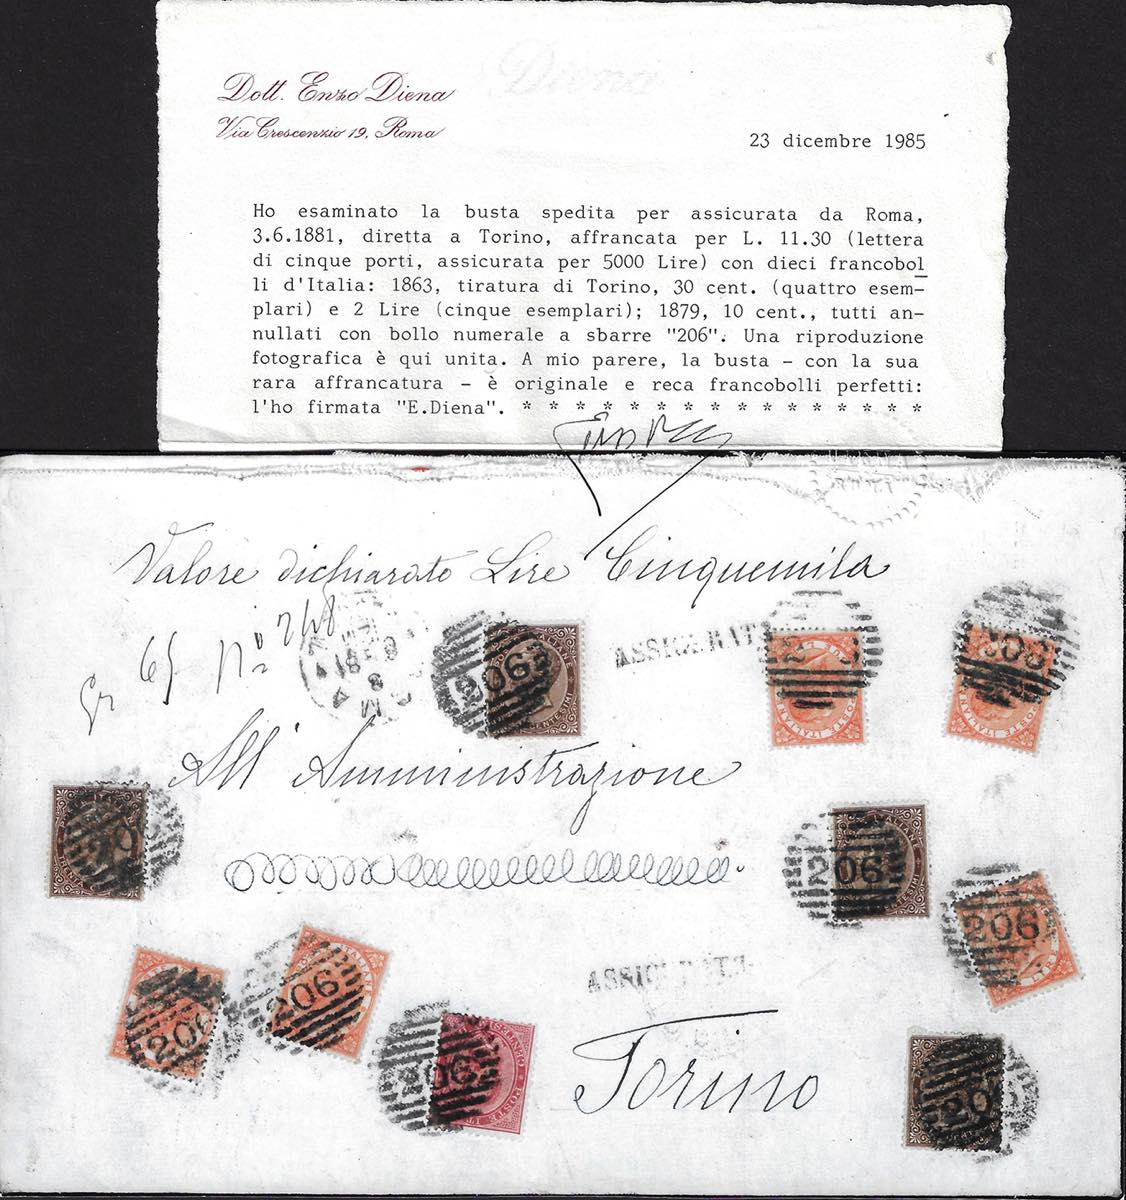 Dott. Enzo Diena
Via Crescenzio 19, Roma
Diena
23 dicembre 1985
Ho esaminato la busta spedita per assicurata da Roma,
3.6.1881, diretta a Torino, affrancata per L. 11.30 (lettera
di cinque porti, assicurata per 5000 Lire) con dieci francobol
li d'Italia: 1863, tiratura di Torino, 30 cent. (quattro esem-
plari) e 2 Lire (cinque esemplari); 1879, 10 cent., tutti an-
nullati con bollo numerale a sbarre "206". Una riproduzione
fotografica è qui unita. A mio parere, la busta - con la sua
rara affrancatura - è originale e reca francobolli perfetti:
l'ho firmata "E.Diena". * * * * * * * * * * * * * * * *
Valore dichiarato Lire Cinquemila
Gr 65 N° 248
ASSICURATA
206
206
All'Amministrazione
206
206
206
206
206
ASSICURATA
206
Torino
206